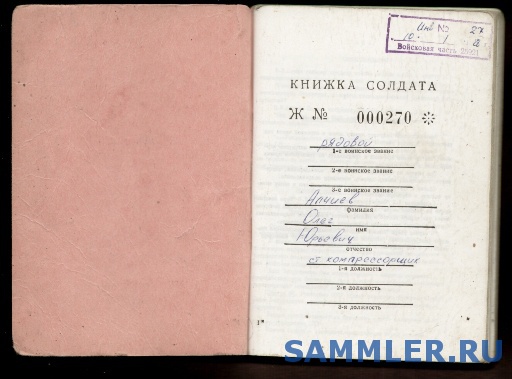 Инв №
Войсковая часть
КНИЖКА СОЛДАТА
Ж № 000270
рядовой
1-е воинское звание
2-е воинское звание
3-е воинское звание
фамилия
Олег
имя
Юрьевич
отчество
ст компрессорщик
1-я должность
2-я должность
3-я должность
SAMMLER.RU